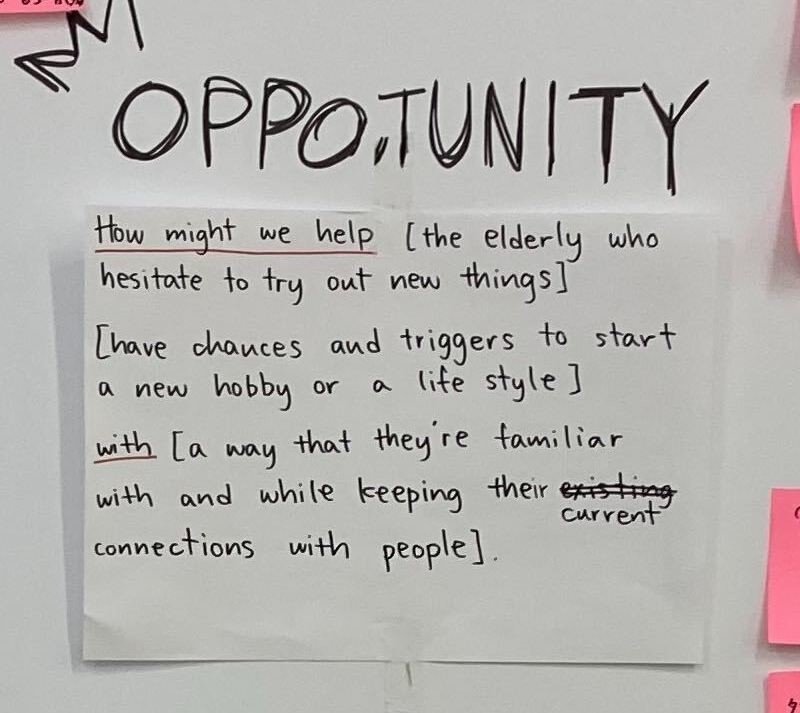 OPPO.TUNITY
How might we help [the elderly who
hesitate to try out new things]
[have chances and triggers to start
a new hobby or a life style]
with [a way that they're familiar
with and while keeping their existing
current
connections with people].